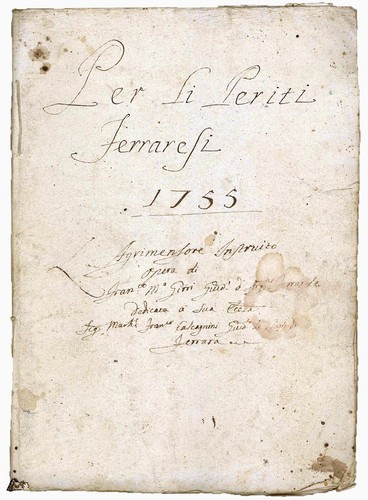 Per li Periti
Ferraresi
1755
L'Agrimensore Instruito
opera di
Fran.co M.a Giud.e d'Arg.
Dedicata a Sua Ecc.za
Sig.r March.e Fran.co Calcagnini Giud.e
Ferrara